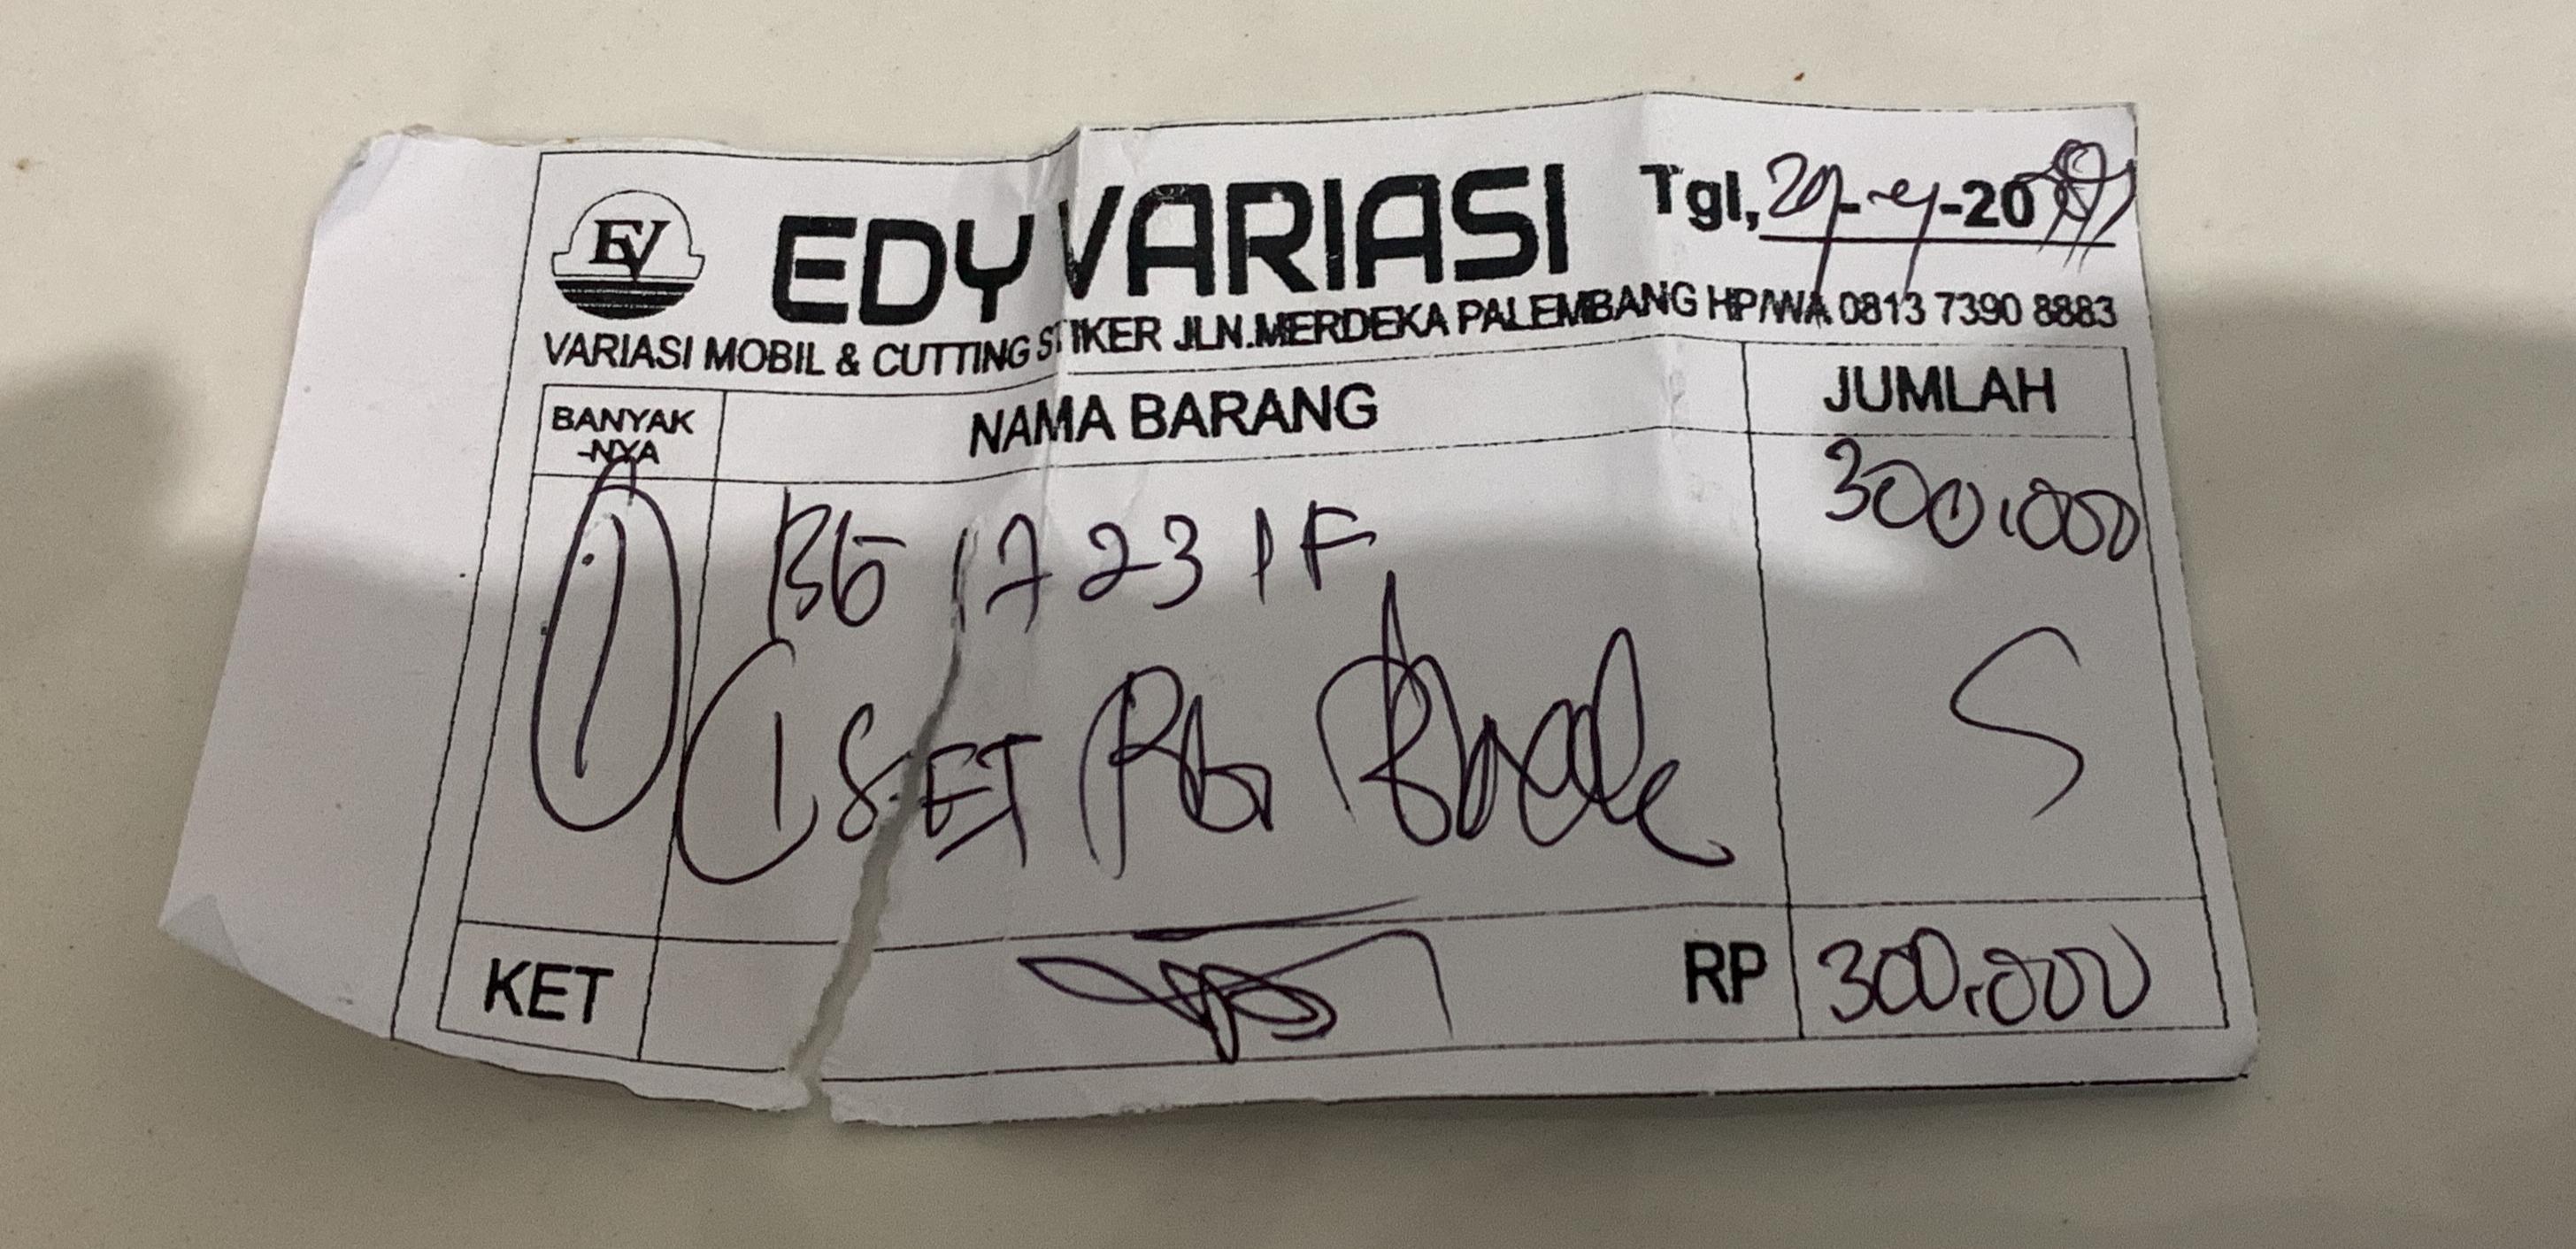 EV
EDY VARIASI
Tgl, 29-4-20
VARIASI MOBIL & CUTTING STIKER JLN.MERDEKA PALEMBANG HP/WA 0813 7390 8883
BANYAK
-NYA
NAMA BARANG
JUMLAH
1
BG 1723 IF
300.000
1 SET
KET
RP
300.000